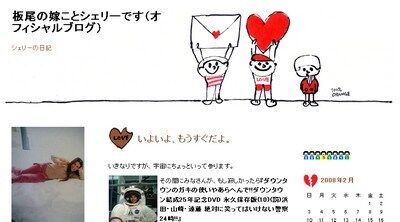 板尾の嫁ことシェリーです(オ
フィシャルブログ)
シェリーの日記
LOVE
LOVE いよいよ、もうすぐだよ。
いきなりですが、宇宙にちょっといって参ります。
その間こみなさんが、もし寂しかったら『ダウンタ
ウンのガキの使いやあらへんで!!ダウンタウ
ン結成25年記念DVD 永久保存版(10)(罰)浜
田・山崎・遠藤 絶対に笑ってはいけない警察
24時!!』
2008年2月
日 月 火 水 木 金 土
1 2
3 4 5 6 7 8 9
10 11 12 13 14 15 16